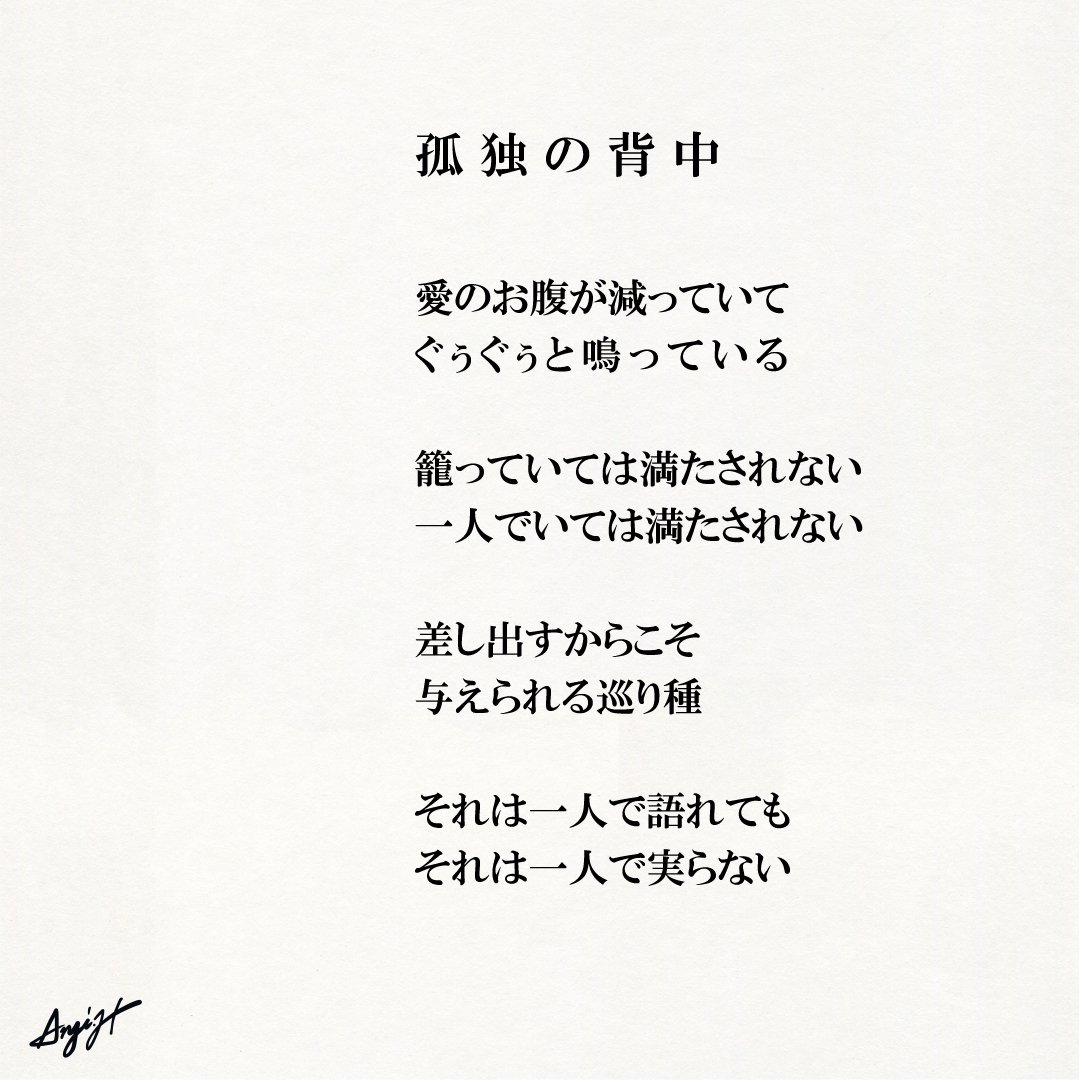 孤独の背中
愛のお腹が減っていて
ぐぅぐぅと鳴っている
籠っていては満たされない
一人でいては満たされない
差し出すからこそ
与えられる巡り種
それは一人で語れても
それは一人で実らない